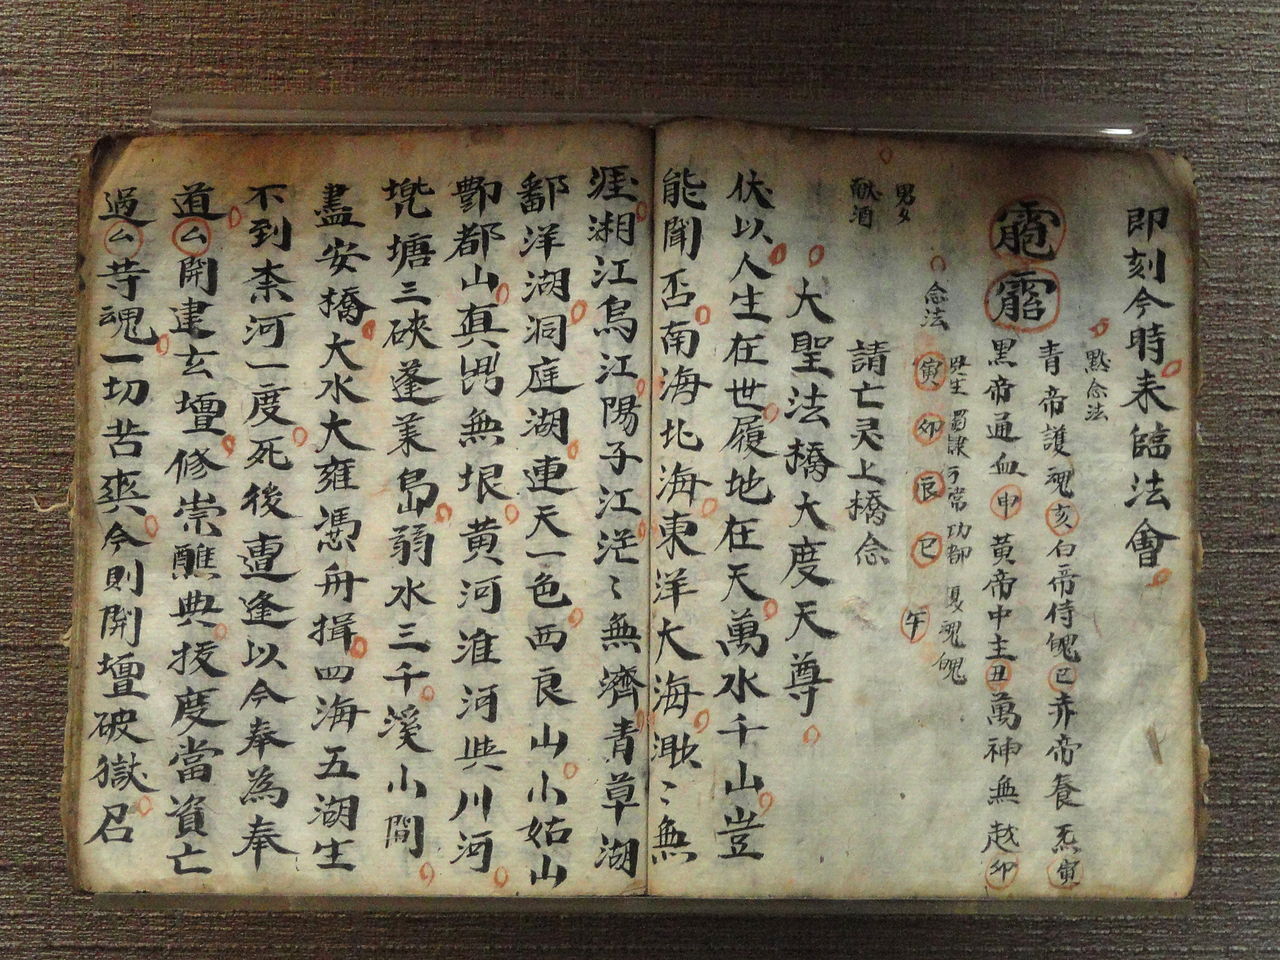 即刻今時来臨法會
黙念法
青帝護魂亥白帝侍魄巳赤帝養炁寅
黑帝通血申黃帝中主丑萬神無越卯
念法
寅卯辰巳午
男女
献酒
請亡灵上橋念
大聖法橋大度天尊
伏以人生在世履地在天萬水千山豈
能聞否南海北海東洋大海渺〻無
涯湘江烏江陽子江茫〻無濟青草湖
鄱洋湖洞庭湖連天一色西良山小姑山
酆都山真無垠黃河淮河與川河
塘三硤蓬萊島弱水三千溪小間
盡安橋大水大雍憑舟揖四海五湖生
不到柰河一度死後遭逢以今奉為奉
道厶開建玄壇修崇醮典拔度當資亡
過厶等魂一切苦爽今則開壇破獄召